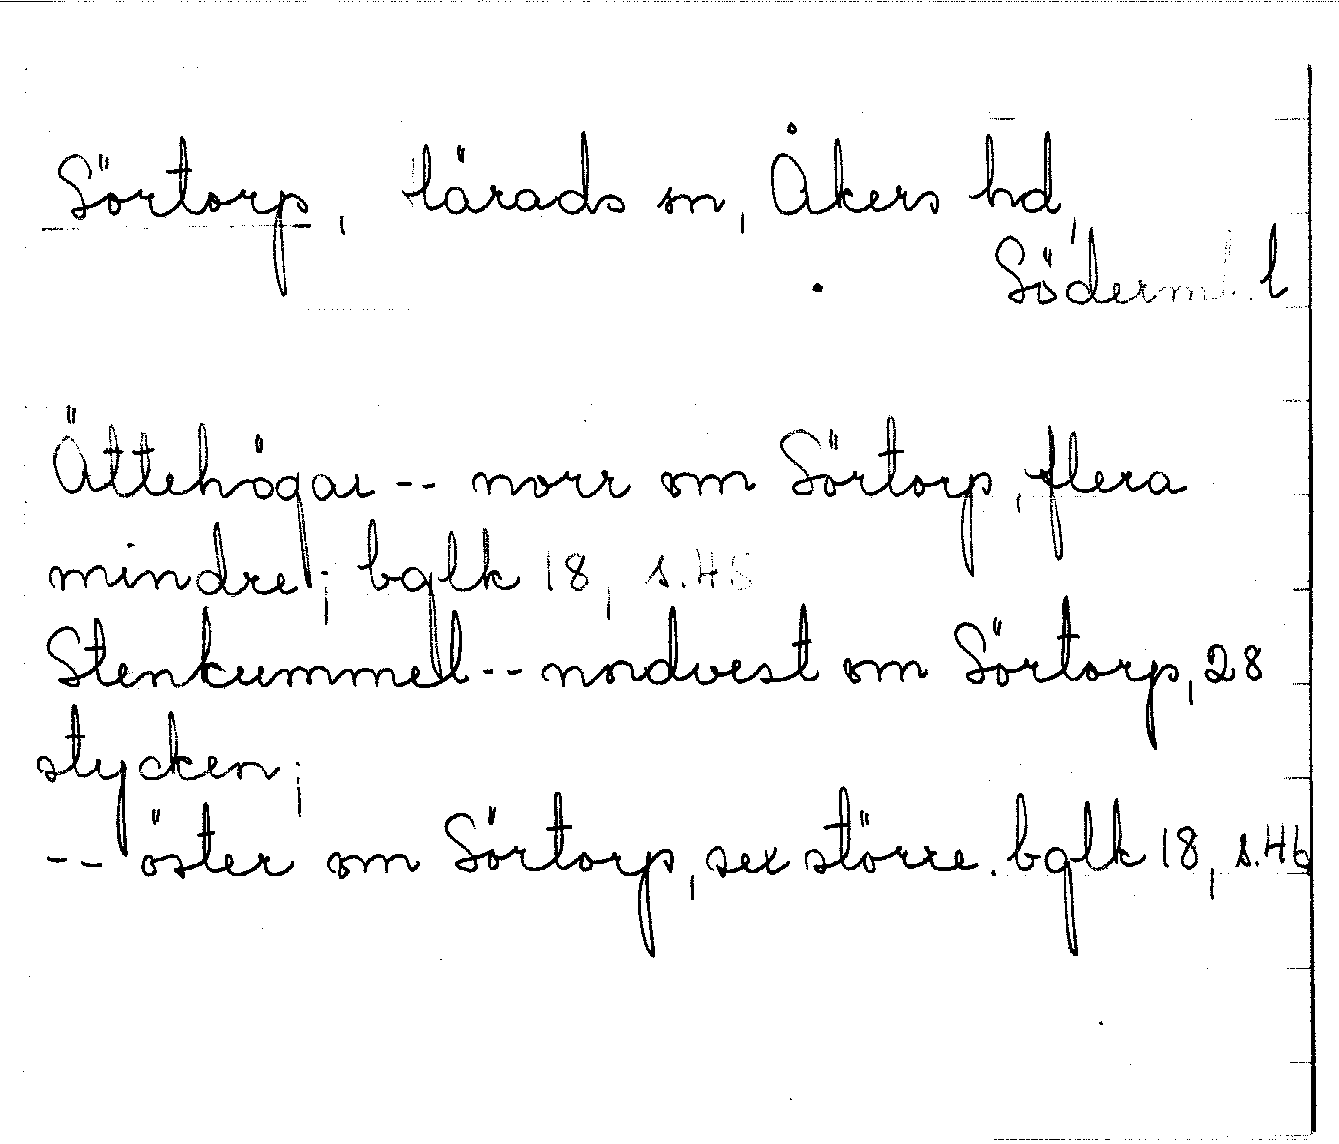 Sörtorp, Lärads sn, Åkers hd,
Söderml. l
Ättehögar -- norr om Sörtorp, flera
mindre; bglk 18, s.46
Stenkummel -- nordvest om Sörtorp, 28
stycken;
-- öster om Sörtorp, sex större. bglk 18, s.46